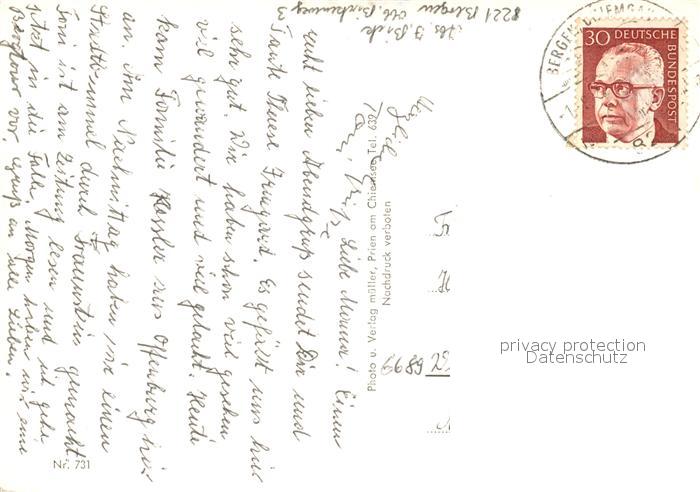 Liebe Mama! Einen
recht lieben Abendgruß sendet Dir und
Tante Therese Irmgard. Es gefällt uns hier
sehr gut. Wir haben schon viel gesehen
viel gewandert und viel gelacht. Heute
kam Familie Kessler aus Offenburg hier
an. Am Nachmittag haben wir einen
Stadtbummel durch Traunstein gemacht.
Toni ist am Zeitung lesen und ich gehe
jetzt in die Falle. Morgen haben wir eine
Bergtour vor. Gruß an alle Lieben.
Herzliche
Abs. J. Bick
8221 Bergen Obb. Birkenweg 3
Photo u. Verlag müller, Prien am Chiemsee, Tel. 639
Nachdruck verboten
Nr. 731
30 DEUTSCHE
BUNDESPOST
BERGEN CHIEMGAU
82
Fr
H
6899
privacy protection
Datenschutz